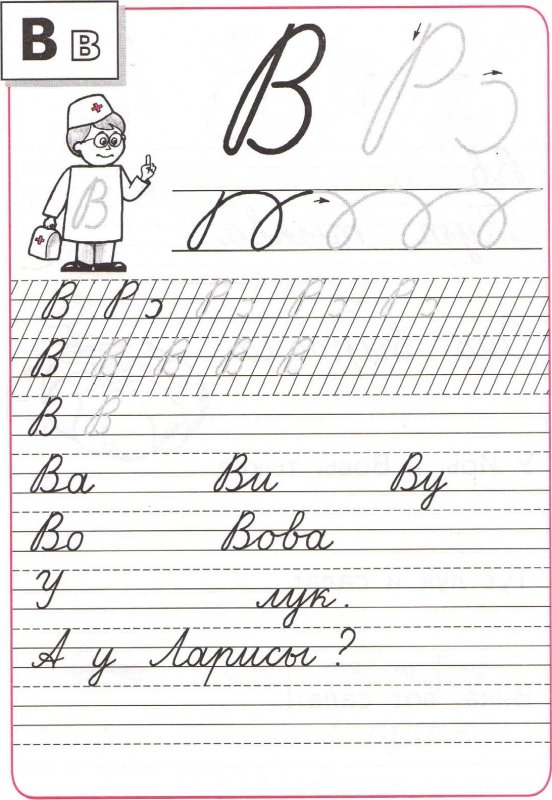 В в
В Р
В
В Р э Р э Р э Р э
В В В В В
В В
Ва Ви Ву
Во Вова
У лук.
А у Ларисы?